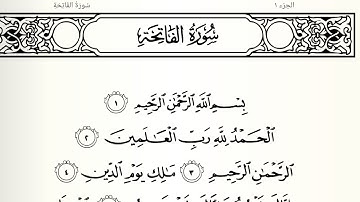 الجزء ١ سورة الفاتحة
سُورَةُ الفَاتِحَةِ
بِسْمِ ٱللَّهِ ٱلرَّحْمَٰنِ ٱلرَّحِيمِ ١
ٱلْحَمْدُ لِلَّهِ رَبِّ ٱلْعَٰلَمِينَ ٢
ٱلرَّحْمَٰنِ ٱلرَّحِيمِ ٣ مَٰلِكِ يَوْمِ ٱلدِّينِ ٤